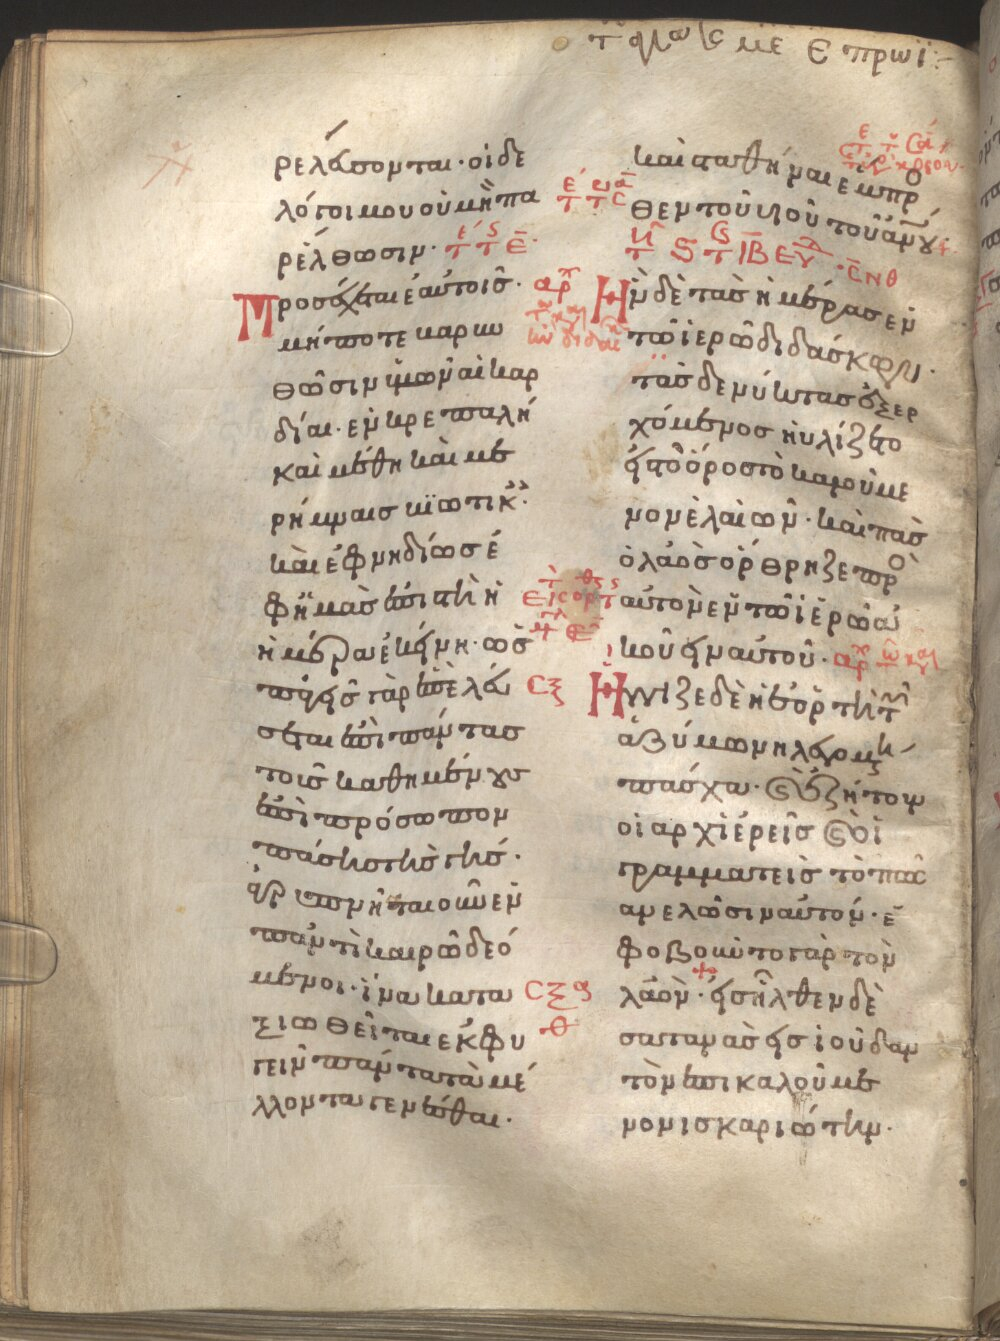 ρελεύσονται· οἱ δὲ
λόγοι μου οὐ μὴ πα
ρέλθωσιν·
Προσέχεται ἑαυτοῖς·
μήποτε καρω
θῶσιν ὑμῶν αἱ καρ
δίαι· ἐν κρεπαλη
καὶ μέθη καὶ με
ρήμναισ βιωτικ
καὶ ἐφνηδίωσ ἐ
φ ἡμὰσ ἐπιστὴ ἡ
ἡμέρα ἐκείνη· ὡσ
παγεὶσ γὰρ ἐπελεύ
σεται ἐπὶ πάντασ
τοὺσ καθημένους
ἐπὶ πρόσωπον
πάσησ τῆσ γῆσ·
ἀγρυπνήται οὖν ἐν
παντὶ καιρῶ δεό
μενοι· ἵνα κατα
ξιωθεῖται ἐκφυ
γεῖν πάντα τὰ μέ
λλοντα γενέσθαι·
καὶ σταθῆναι ἔμπρο
σθεν τοῦ υἱοῦ τοῦ ἀνου·
Ἦν δὲ τὰσ ἡμέρασ ἐν
τῶ ἱερῶ διδάσκων·
τὰσ δὲ νύκτασ ἐξερ
χόμενοσ ηὐλίζετο
εἰσ τὸ ὄροσ τὸ καλούμε
νον ἐλαιῶν· καὶ πᾶσ
ὁ λαὸσ ὀρθρηζε προ
αὐτὸν ἐν τῶ ἱερῶ ἀ
κούειν αὐτοῦ·
Ἤγγιζε δὲ ἡ ἑορτὴ τ
ἀζύμων ἡ λεγομεν
πάσχα· καὶ ἐζήτουν
οἱ ἀρχιέρεῖσ καὶ οἱ
γραμματεῖσ τὸ πῶσ
ἀνελῶσιν αὐτόν· ἐ
φοβοῦντο γὰρ τὸν
λαὸν· εἰσῆλθεν δὲ
σατανὰσ εἰσ ἰούδαν
τὸν ἐπικαλούμε
νον ισκαριώτην·